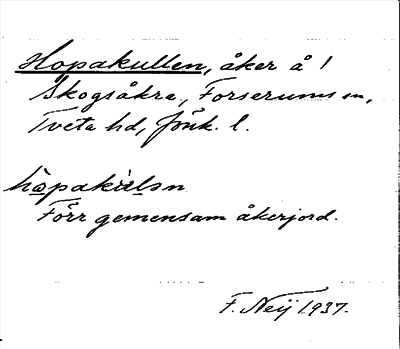 Hopakullen, åker å 1
Skogsåkra, Forserums sn,
Tveta hd, Jönk. l.
hòpakùlɘn
Förr gemensam åkerjord.
F. Neij 1937.